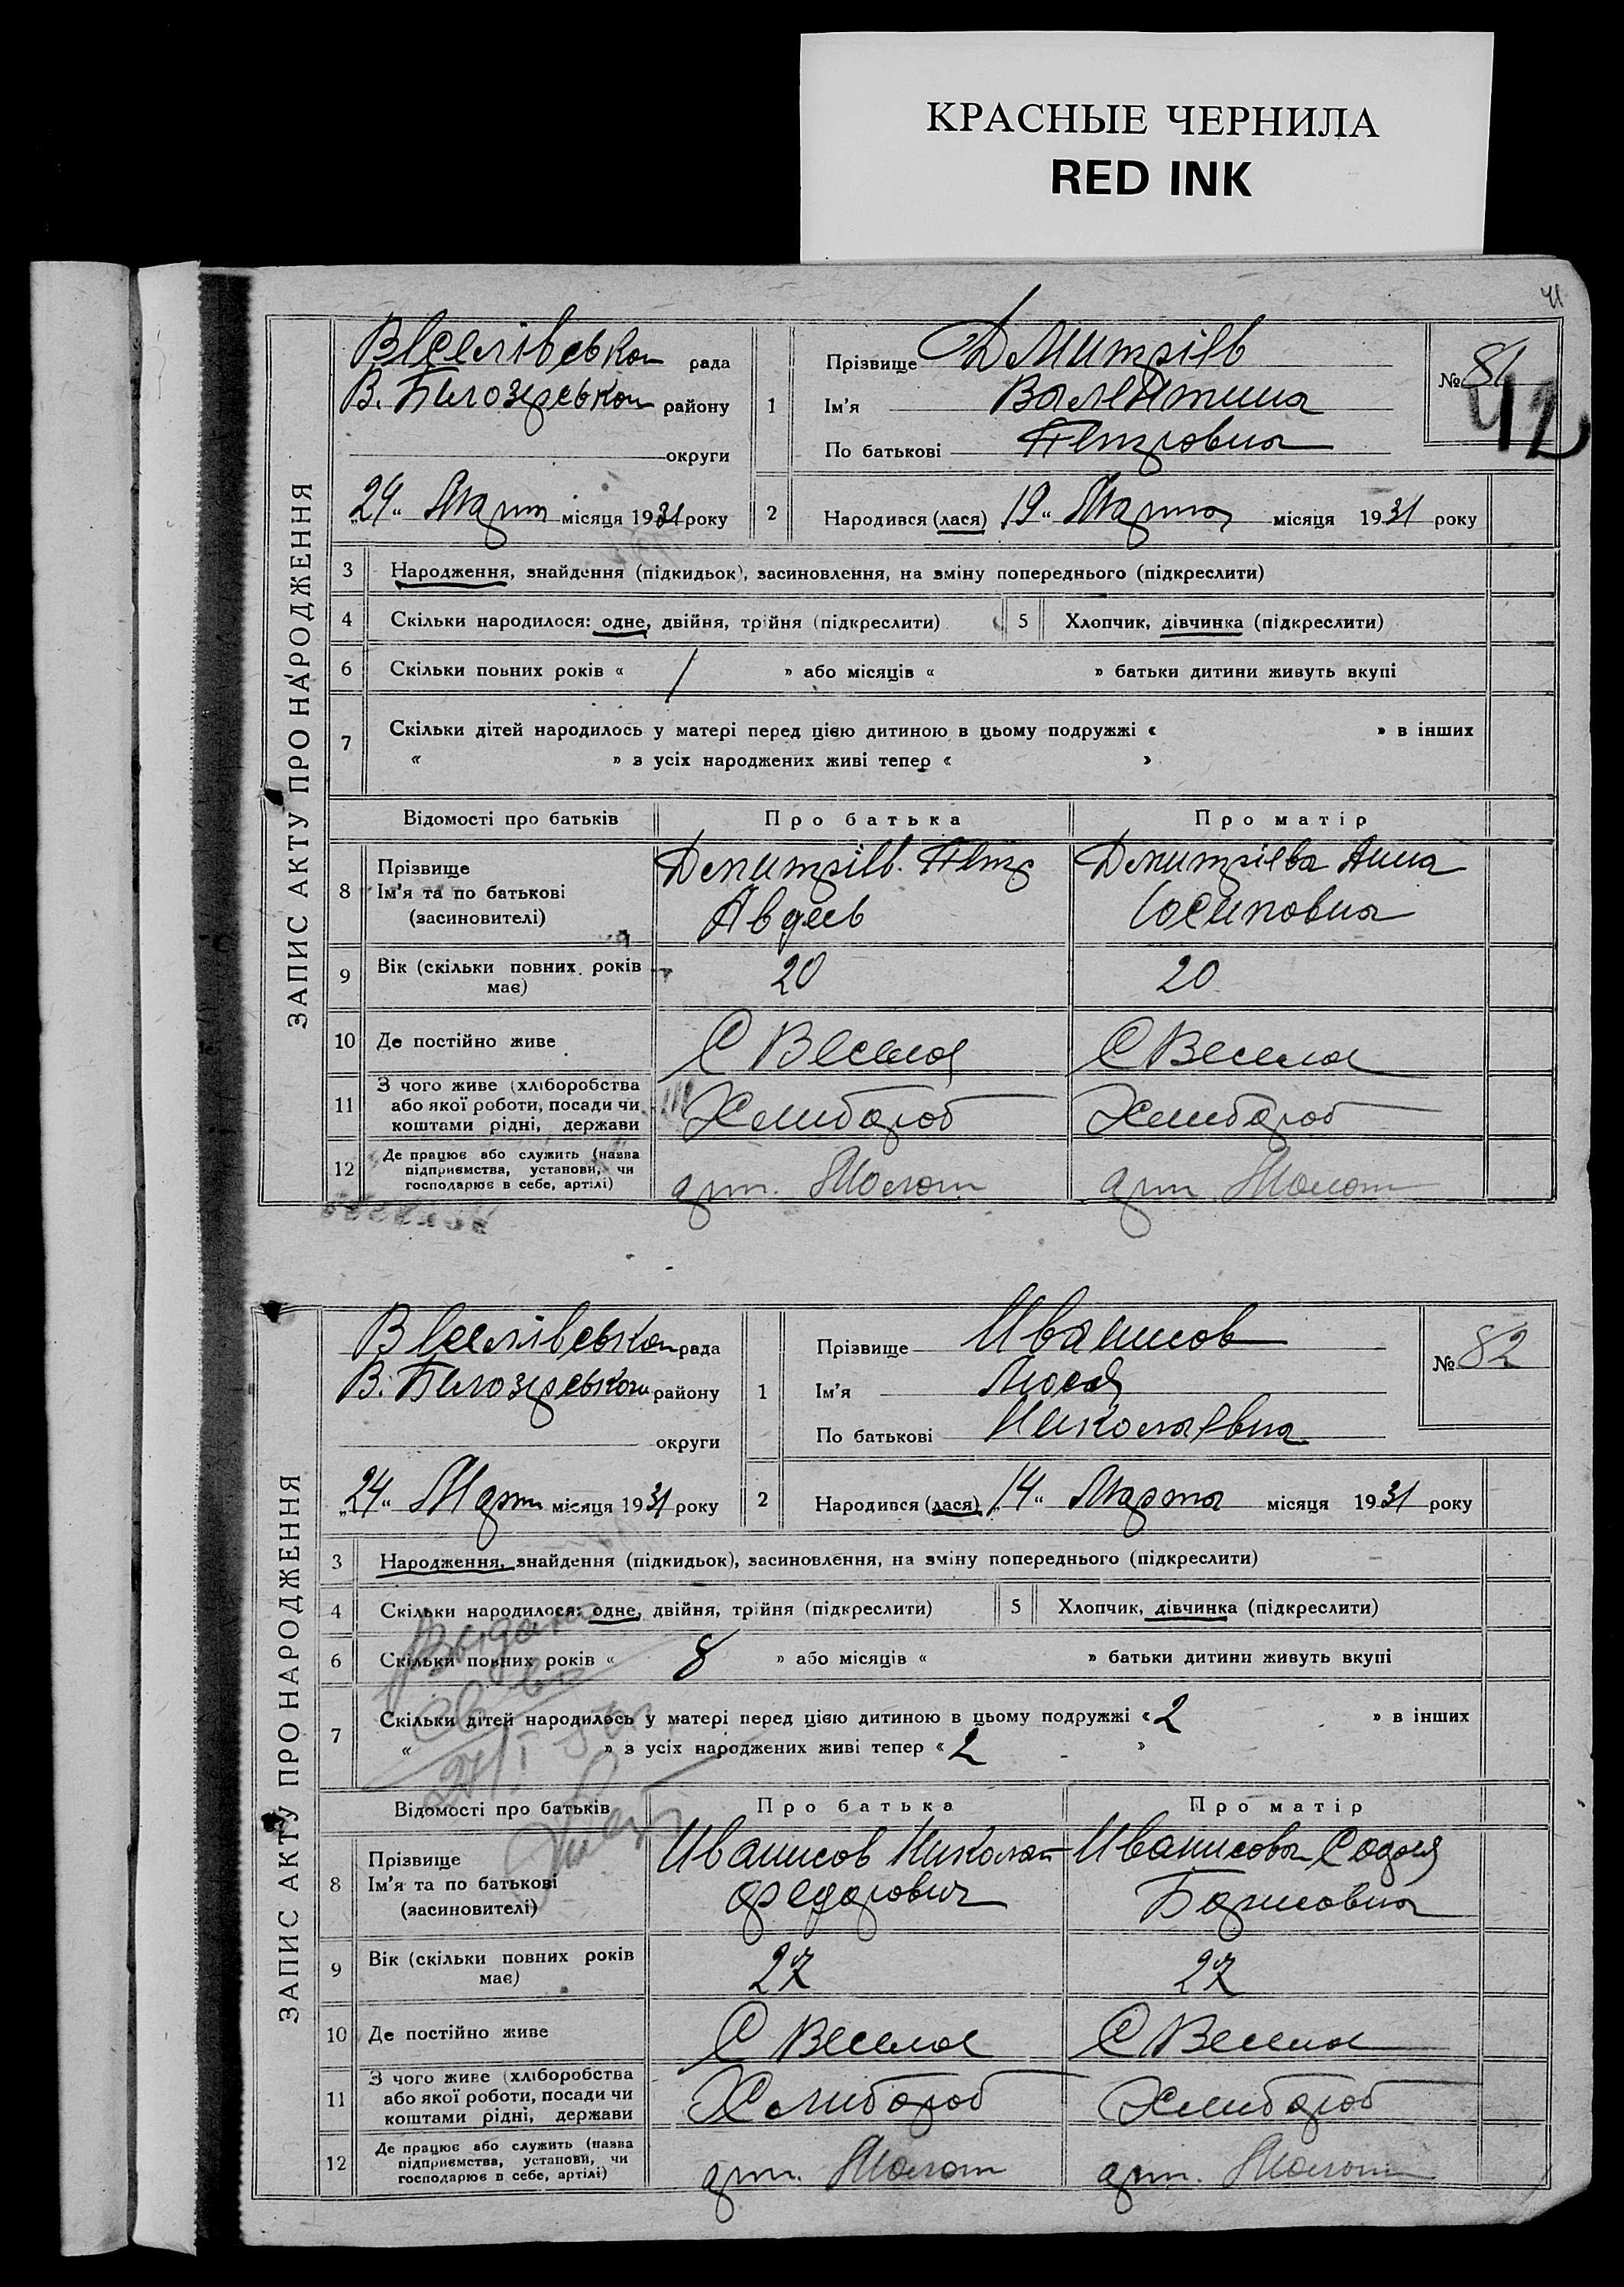 КРАСНЫЕ ЧЕРНИЛА
RED INK
41
ЗАПИС АКТУ ПРО НАРОДЖЕННЯ
Веселівськои рада
В. Билозерськои району
округи
„24“ Март місяця 1931 року
1
Прізвище Дмитрієв
Ім'я Валентина
По батькові Петровна
№ 81
42
2 Народився (лася) 19“ Марта місяця 1931 року
3 Народження, знайдення (підкидьок), засиновлення, на зміну попереднього (підкреслити)
4 Скільки народилося: одне, двійня, трійня (підкреслити) 5 Хлопчик, дівчинка (підкреслити)
6 Скільки повних років « 1 » або місяців « » батьки дитини живуть вкупі
7 Скільки дітей народилось у матері перед цією дитиною в цьому подружжі « » в інших
« » з усіх народжених живі тепер « »
Відомості про батьків Про батька Про матір
8 Прізвище
Ім'я та по батькові
(засиновителі)
Дмитрієв Петр
Авдеев
Дмитрієва Анна
Осиповна
9 Вік (скільки повних років має) 20 20
10 Де постійно живе С Весела С Весела
11 З чого живе (хліборобства
або якої роботи, посади чи
коштами рідні, держави
Хлибороб Хлибороб
12 Де працює або служить (назва
підприємства, установи, чи
господарює в себе, артілі)
арт. Молот арт. Молот
ЗАПИС АКТУ ПРО НАРОДЖЕННЯ
Веселівськои рада
В. Билозерськои району
округи
„24“ Март місяця 1931 року
1
Прізвище Иванисов
Ім'я Люся
По батькові Николаевна
№ 82
2 Народився (лася) „14“ Марта місяця 1931 року
3 Народження, знайдення (підкидьок), засиновлення, на зміну попереднього (підкреслити)
4 Скільки народилося: одне, двійня, трійня (підкреслити) 5 Хлопчик, дівчинка (підкреслити)
6 Скільки повних років « 8 » або місяців « » батьки дитини живуть вкупі
7 Скільки дітей народилось у матері перед цією дитиною в цьому подружжі « 2 » в інших
« » з усіх народжених живі тепер « 2 »
Выдано
Відомості про батьків Про батька Про матір
8 Прізвище
Ім'я та по батькові
(засиновителі)
Иванисов Николай
Федорович
Иванисова
Борисовна
9 Вік (скільки повних років має) 27 27
10 Де постійно живе С Весела С Весела
11 З чого живе (хліборобства
або якої роботи, посади чи
коштами рідні, держави
Хлибороб Хлибороб
12 Де працює або служить (назва
підприємства, установи, чи
господарює в себе, артілі)
арт. Молот арт. Молот